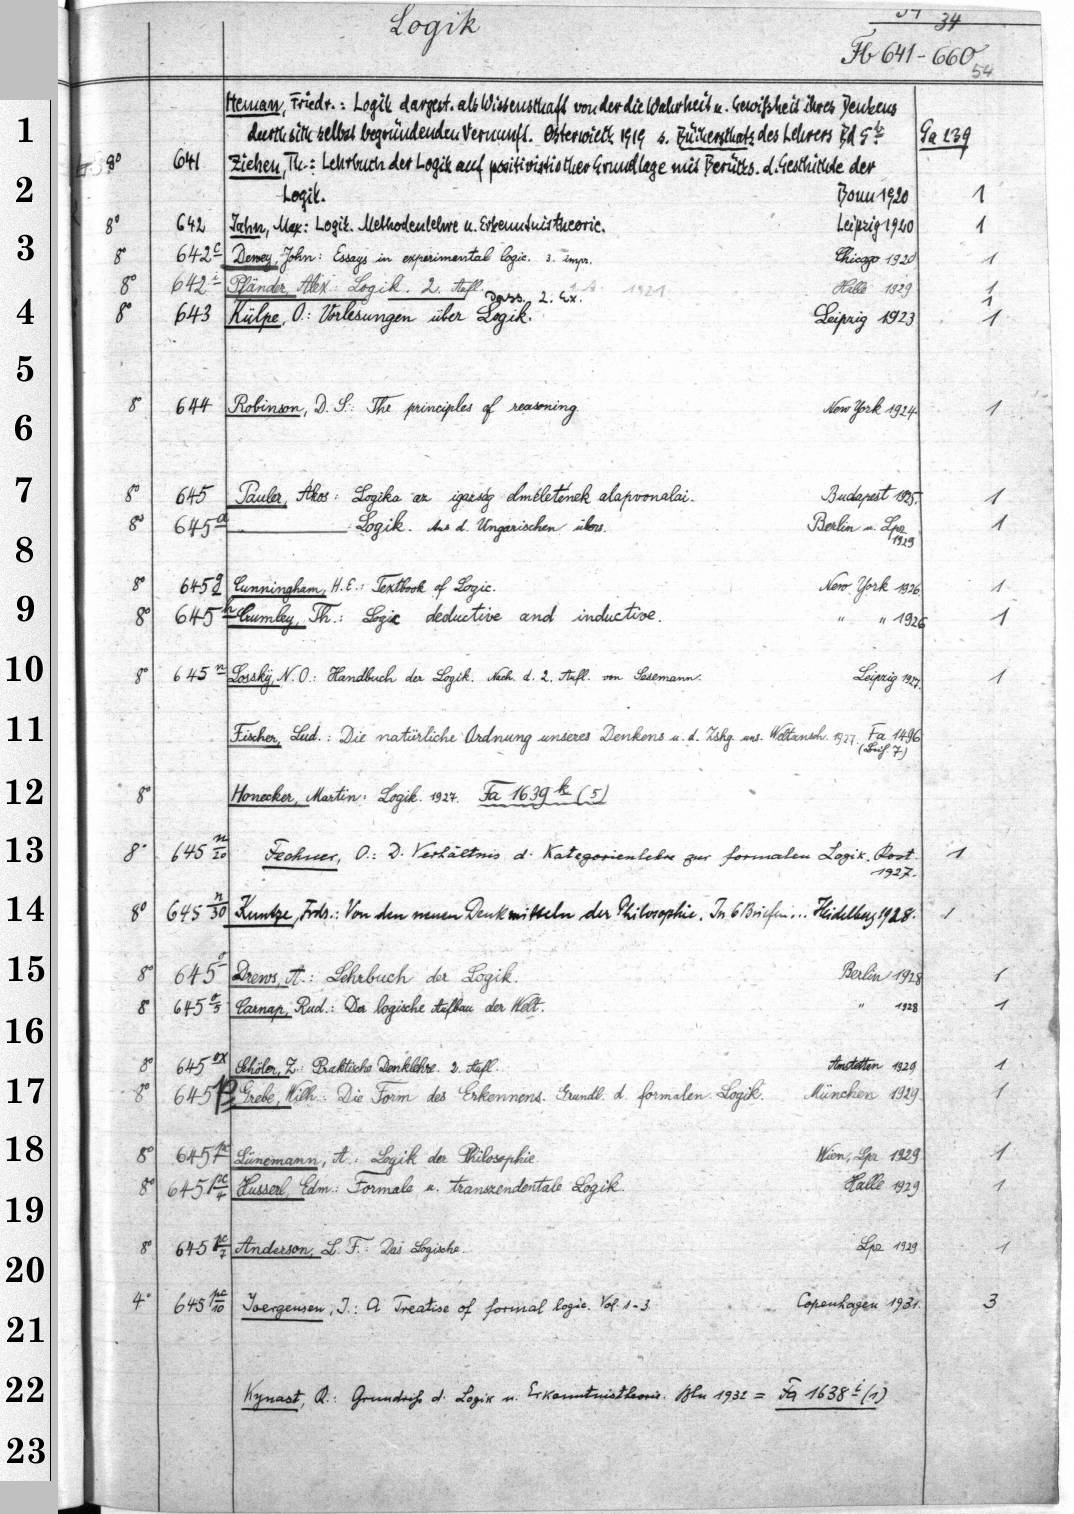 Logik
34
Fb 641 - 660
54
Heman, Friedr.: Logik dargest. als Wissenschaft von der die Wahrheit u. Gewißheit ihres Denkens
1 durch sich selbst begründenden Vernunft. Osterwieck 1919 s. Bücherschatz des Lehrers Bd 9 Ga 239
8° 641 Ziehen, Th.: Lehrbuch der Logik auf positivistischer Grundlage mit Berücks. d. Geschichte der
2 Logik. Bonn 1920 1
8° 642 Jahn, Max: Logik. Methodenlehre u. Erkenntnistheorie. Leipzig 1920 1
3
8° 642 c Dewey, John: Essays in experimental logic. 3. impr. Chicago 1920 1
8° 642 i Pfänder, Alex: Logik. 2. Aufl. 1921 Halle 1929 1
Dass. 2. Ex. 1
4 8° 643 Külpe, O.: Vorlesungen über Logik. Leipzig 1923 1
5
8° 644 Robinson, D. S.: The principles of reasoning New York 1924 1
6
7 8° 645 Pauler, Akos: Logika az igazság elméletének alapvonalai. Budapest 1925. 1
8° 645 a Logik. Aus d. Ungarischen übers. Berlin u. Lpz 1929 1
8
8° 645 g Cunningham, H. E.: Textbook of Logic. New York 1926 1
9 8° 645 h Crumley, Th.: Logic deductive and inductive. " " 1926 1
10 8° 645 n Losskij, N. O.: Handbuch der Logik. Nach d. 2. Aufl. von Sesemann. Leipzig 1927. 1
11 Fischer, Lud.: Die natürliche Ordnung unseres Denkens u. d. Zshg. uns. Weltansch. 1927. Fa 1496
(Beif. 7)
12 8° Honecker, Martin: Logik. 1927. Fa 1639 k (5)
13 8° 645 n/20 Fechner, O.: D. Verhältnis d. Kategorienlehre zur formalen Logik. Rost. 1
1927.
14 8° 645 n/30 Kuntze, Frdr.: Von den neuen Denkmitteln der Philosophie. In 6 Briefen... Heidelberg 1928. 1
15 8° 645 o Drews, A.: Lehrbuch der Logik. Berlin 1928 1
8° 645 o/5 Carnap, Rud.: Der logische Aufbau der Welt. " 1928 1
16
8° 645 ox Schöler, Z: Praktische Denklehre. 2. Aufl. Amstetten 1929 1
17 8° 645 p Grebe, Wilh.: Die Form des Erkennens. Grundl. d. formalen Logik. München 1929. 1
18 8° 645 pc Lünemann, A.: Logik der Philosophie Wien, Lpz 1929 1
8° 645 pc/4 Husserl, Edm.: Formale u. transzendentale Logik. Halle 1929 1
19
8° 645 pc/7 Anderson, L. F.: Das Logische. Lpz 1929 1
20
4° 645 pc/10 Joergensen, J.: A Treatise of formal logic. Vol. 1-3 Copenhagen 1931. 3
21
22 Kynast, R.: Grundriß d. Logik u. Erkenntnistheorie. Bln 1932 = Fa 1638 i (1)
23